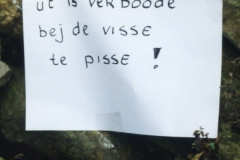 ut is verboode
bej de visse
te pisse !